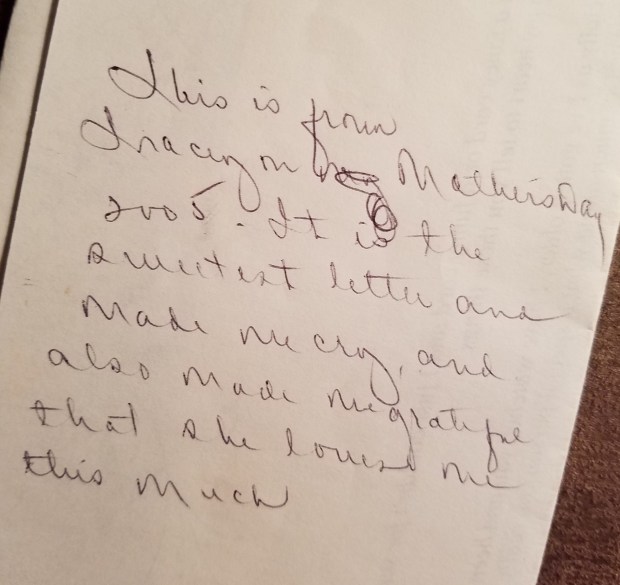 This is from
Tracey on Mother's Day
2005. It is the
sweetest letter and
made me cry, and
also made me grateful
that she loves me
this much